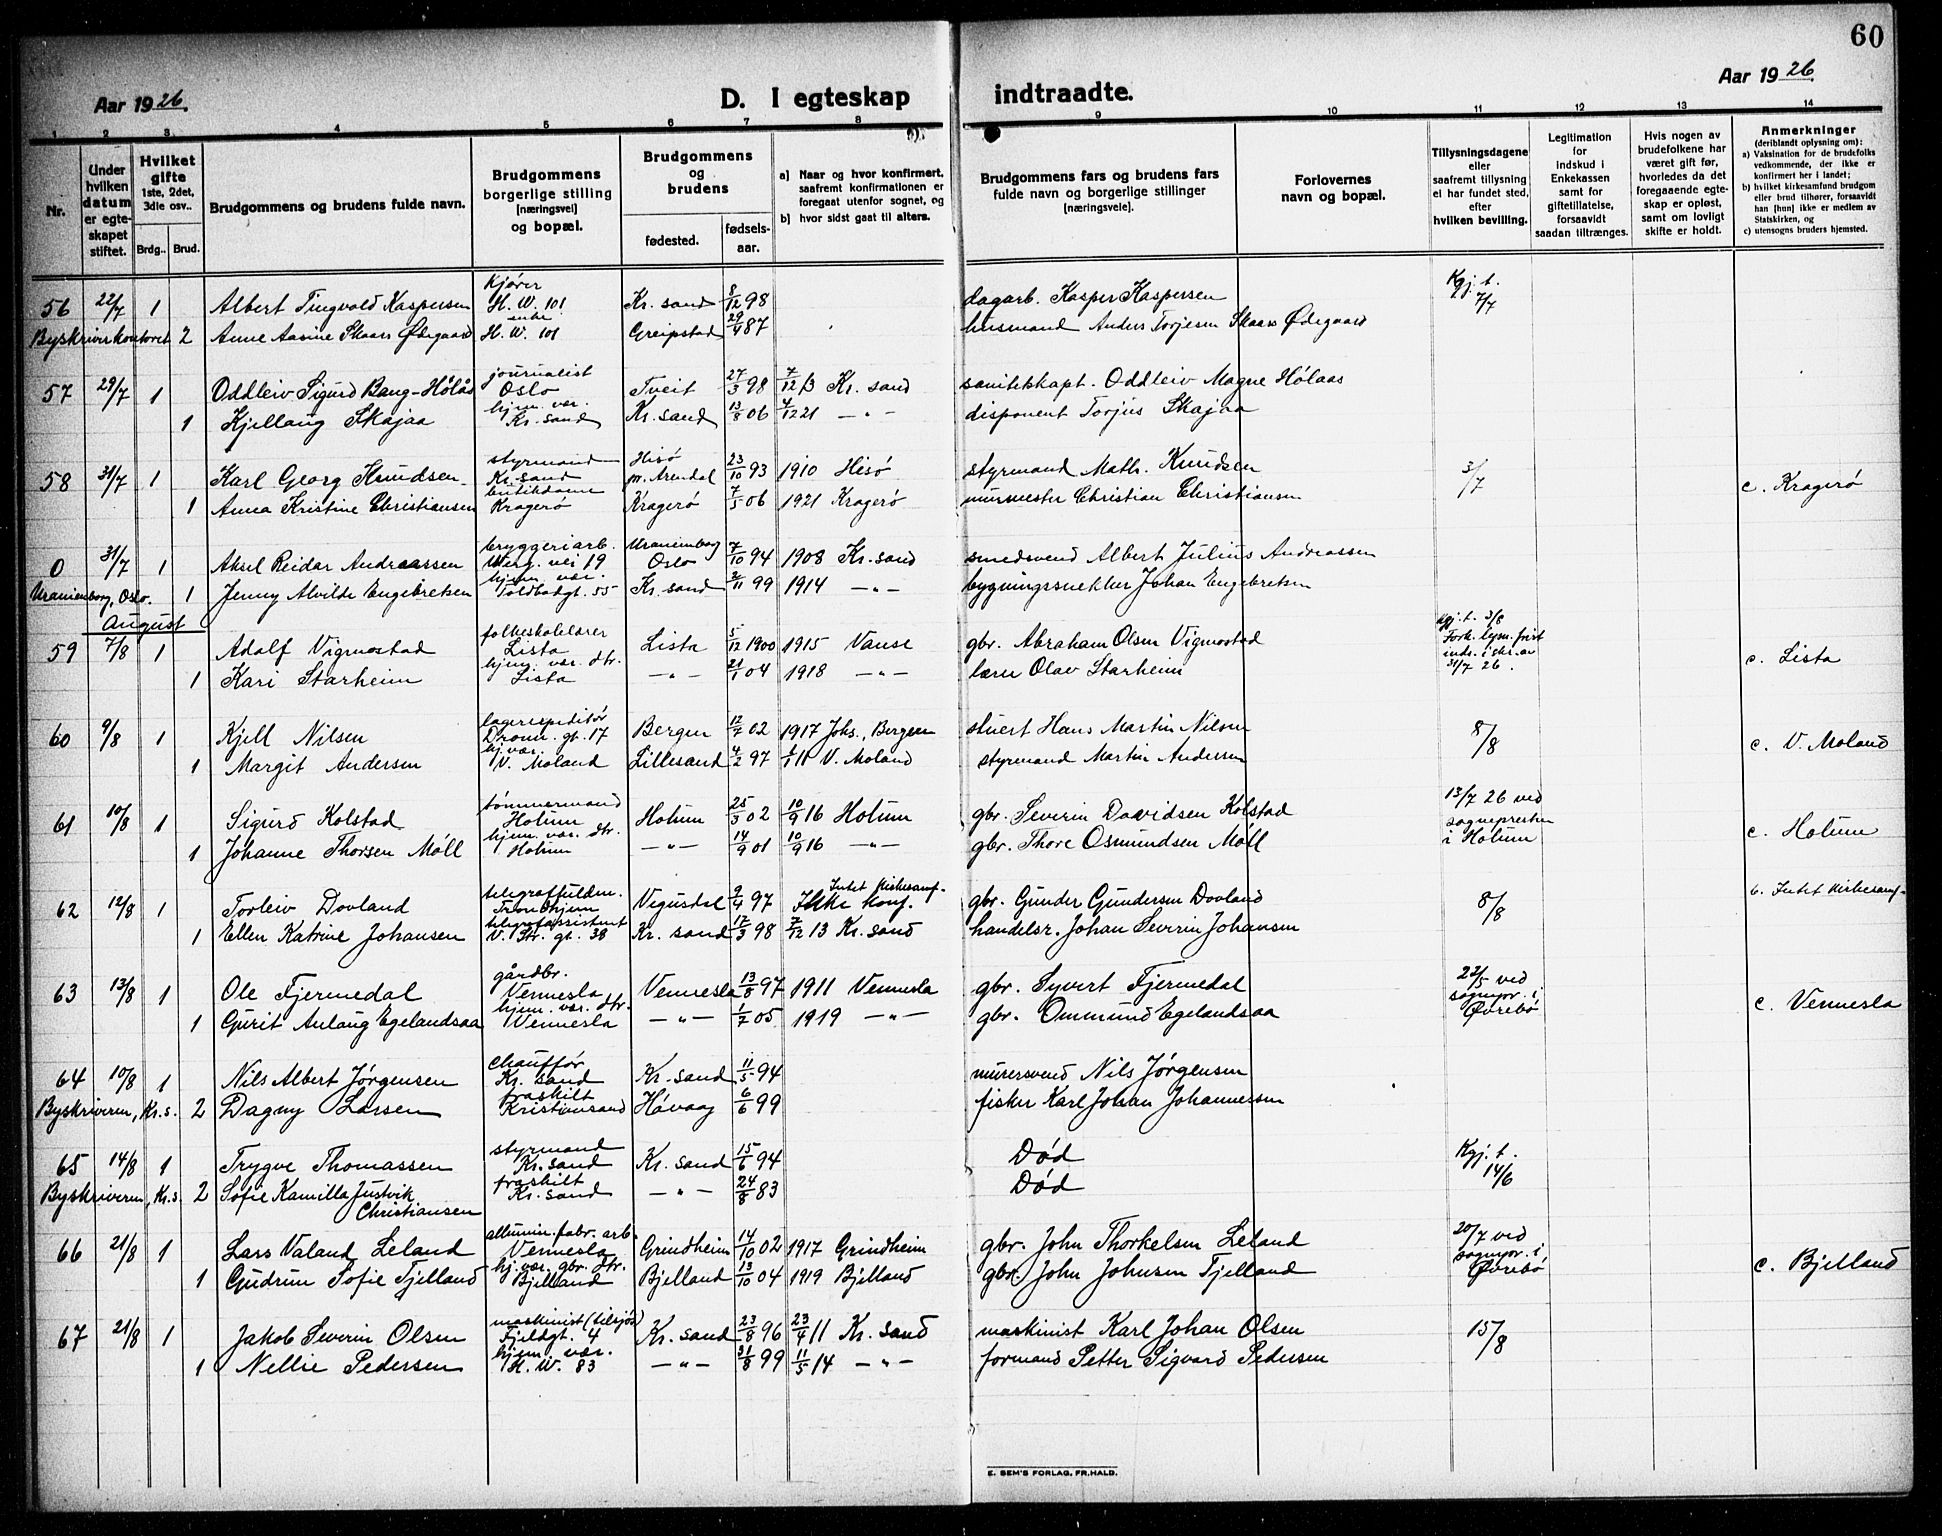 60
Aar 1926.
D. I egteskap indtraadte.
Aar 1926.
1 2 3 4 5 6 7 8 9 10 11 12 13 14
Nr.
Under hvilken datum er egteskapet stiftet.
Hvilket gifte 1ste, 2det, 3die osv..
Brdg.. Brud.
Brudgommens og brudens fulde navn.
Brudgommens borgerlige stilling [næringsvei] og bopæl.
Brudgommens og brudens
fødested. fødsels-aar.
a) Naar og hvor konfirmert, saafremt konfirmationen er foregaat utenfor sognet, og
b) hvor sidst gaat til alters.
Brudgommens fars og brudens fars fulde navn og borgerlige stillinger [næringsveie].
Forlovernes navn og bopæl.
Tillysningsdagene eller saafremt tillysning ei har fundet sted, efter hvilken bevilling.
Legitimation for Indskud i Enkekassen samt for giftetillatelse, forsaavidt saadan tiltrænges.
Hvis nogen av brudefolkene har været gift før, hvorledes da det foregaaende egteskap er opløst, samt om lovligt skifte er holdt.
Anmerkninger (deriblandt oplysning om):
a) Vaksination for de brudefolks vedkommende, der ikke er konfirmert her i landet;
b) hvilket kirkesamfund brudgom eller brud tilhører, forsaavidt han [hun] ikke er medlem av Statskirken, og
c) utensogns bruders hjemsted.
56 22/7 1 Albert Tingvold Kaspersen Kjører H. W. 101 Kr. sand 8/12 98 dagarb. Kasper Kaspersen Kgj. t. 7/7
Byskriverkontoret 2 Anne Aasine Skaars Ødegaard enke H. W. 101 Greipstad 29/4 87 husmand Anders Torjesen Skaars Ødegaard
57 29/7 1 Oddleiv Sigurd Bang-Hølås journalist Oslo Tveit 27/3 98 7/12 13 Kr. sand sanitetskapt. Oddleiv Magne Hølaas
1 Kjellaug Skajaa hjem. vær. Kr. sand Kr. sand 13/8 06 4/12 21 — „ — disponent Torjus Skajaa
58 31/7 1 Karl Georg Knudsen styrmand Kr. sand Hisø pr. Arendal 23/10 93 1910 Hisø styrmand Math. Knudsen 3/7
1 Anna Kristine Christiansen butikdame Kragerø Kragerø 7/5 06 1921 Kragerø murmester Christian Christiansen c. Kragerø
0 31/7 1 Aksel Reidar Andreassen bryggeriarb. Werg. vei 19 Uranienborg Oslo 7/10 94 1908 Kr. sand smedsvend Albert Julius Andreassen
Uranienborg, Oslo. 1 Jenny Alvilde Engebretsen hjem. vær. Toldbodgt. 55 Kr. sand 2/11 99 1914 — „ — bygningssnekker Johan Engebretsen
August
59 7/8 1 Adolf Vigmostad folkeskolelærer Lista Lista 5/12 1900 1915 Vanse gbr. Abraham Olsen Vigmostad Kgj. t. 3/8 Fork. lysn. frist indr. i skr. av 31/7 26.
1 Kari Starheim hjem. vær. dtr. Lista — „ — 21/1 04 1918 — „ — lærer Olav Starheim c. Lista
60 9/8 1 Kjell Nilsen lagerexpeditør Dronn. gt. 17 Bergen 12/7 02 1917 Johs., Bergen stuert Hans Martin Nilsen 8/8
1 Margit Andersen hj. vær. V. Moland Lillesand 4/2 97 1/1 11 V. Moland styrmand Martin Andersen c. V. Moland
61 10/8 1 Sigurd Kolstad tømmermand Holum Holum 25/3 02 10/9 16 Holum gbr. Severin Davidsen Kolstad 13/7 26 ved sognepresten i Holum
1 Johanne Thorsen Møll hjem. vær. dtr. Holum — „ — 14/9 01 10/9 16 — „ — gbr. Thore Osmundsen Møll c. Holum
62 12/8 1 Torleiv Dovland telegraffuldm. Trondhjem Vigusdal 2/4 97 Intet Kirkesamf. Ikke konf. gbr. Gunder Gundersen Dovland 8/8 b. Intet Kirkesamf.
1 Ellen Katrine Johansen telegrafassistent V. Str. gt. 38 Kr. sand 17/3 98 7/12 13 Kr. sand handelsr. Johan Severin Johansen
63 13/8 1 Ole Fjermedal gårdbr. Vennesla Vennesla 13/8 97 1911 Vennesla gbr. Syvert Fjermedal 22/5 ved sognepr. i Øvrebø
1 Gurit Anlaug Egelandsaa hjem. vær. dtr. Vennesla — „ — 1/7 05 1919 — „ — gbr. Ommund Egelandsaa c. Vennesla
64 10/8 1 Nils Albert Jørgensen chauffør Kr. sand Kr. sand 11/5 94 murersvend Nils Jørgensen
Byskriveren, Kr.s. 2 Dagny Larsen fraskilt Kristiansand Høvaag 6/6 99 fisker Karl Johan Johannessen
65 14/8 1 Trygve Thomassen styrmand Kr. sand Kr. sand 15/6 94 Død Kgj. t. 14/6
Byskriveren, Kr.s. 2 Sofie Kamilla Justvik Christiansen fraskilt Kr. sand — „ — 24/8 83 Død
66 21/8 1 Lars Valand Leland allumin. fabr. arb. Vennesla Grindheim 14/10 02 1917 Grindheim gbr. John Thorkelsen Leland 20/7 ved sognepr. i Øvrebø
1 Gudrun Sofie Tjelland hj. vær. gbr. dtr. Bjelland Bjelland 13/10 04 1919 Bjelland gbr. John Johnsen Tjelland c. Bjelland
67 21/8 1 Jakob Severin Olsen maskinist (tilsjøs) Fjeldgt. 4 Kr. sand 23/8 96 23/4 11 Kr. sand maskinist Karl Johan Olsen 15/8
1 Nellie Pedersen hjem. vær. H. W. 83 — „ — 31/8 99 11/5 14 — „ — formand Petter Sigvard Pedersen
E. SEM'S FORLAG, FR.HALD.